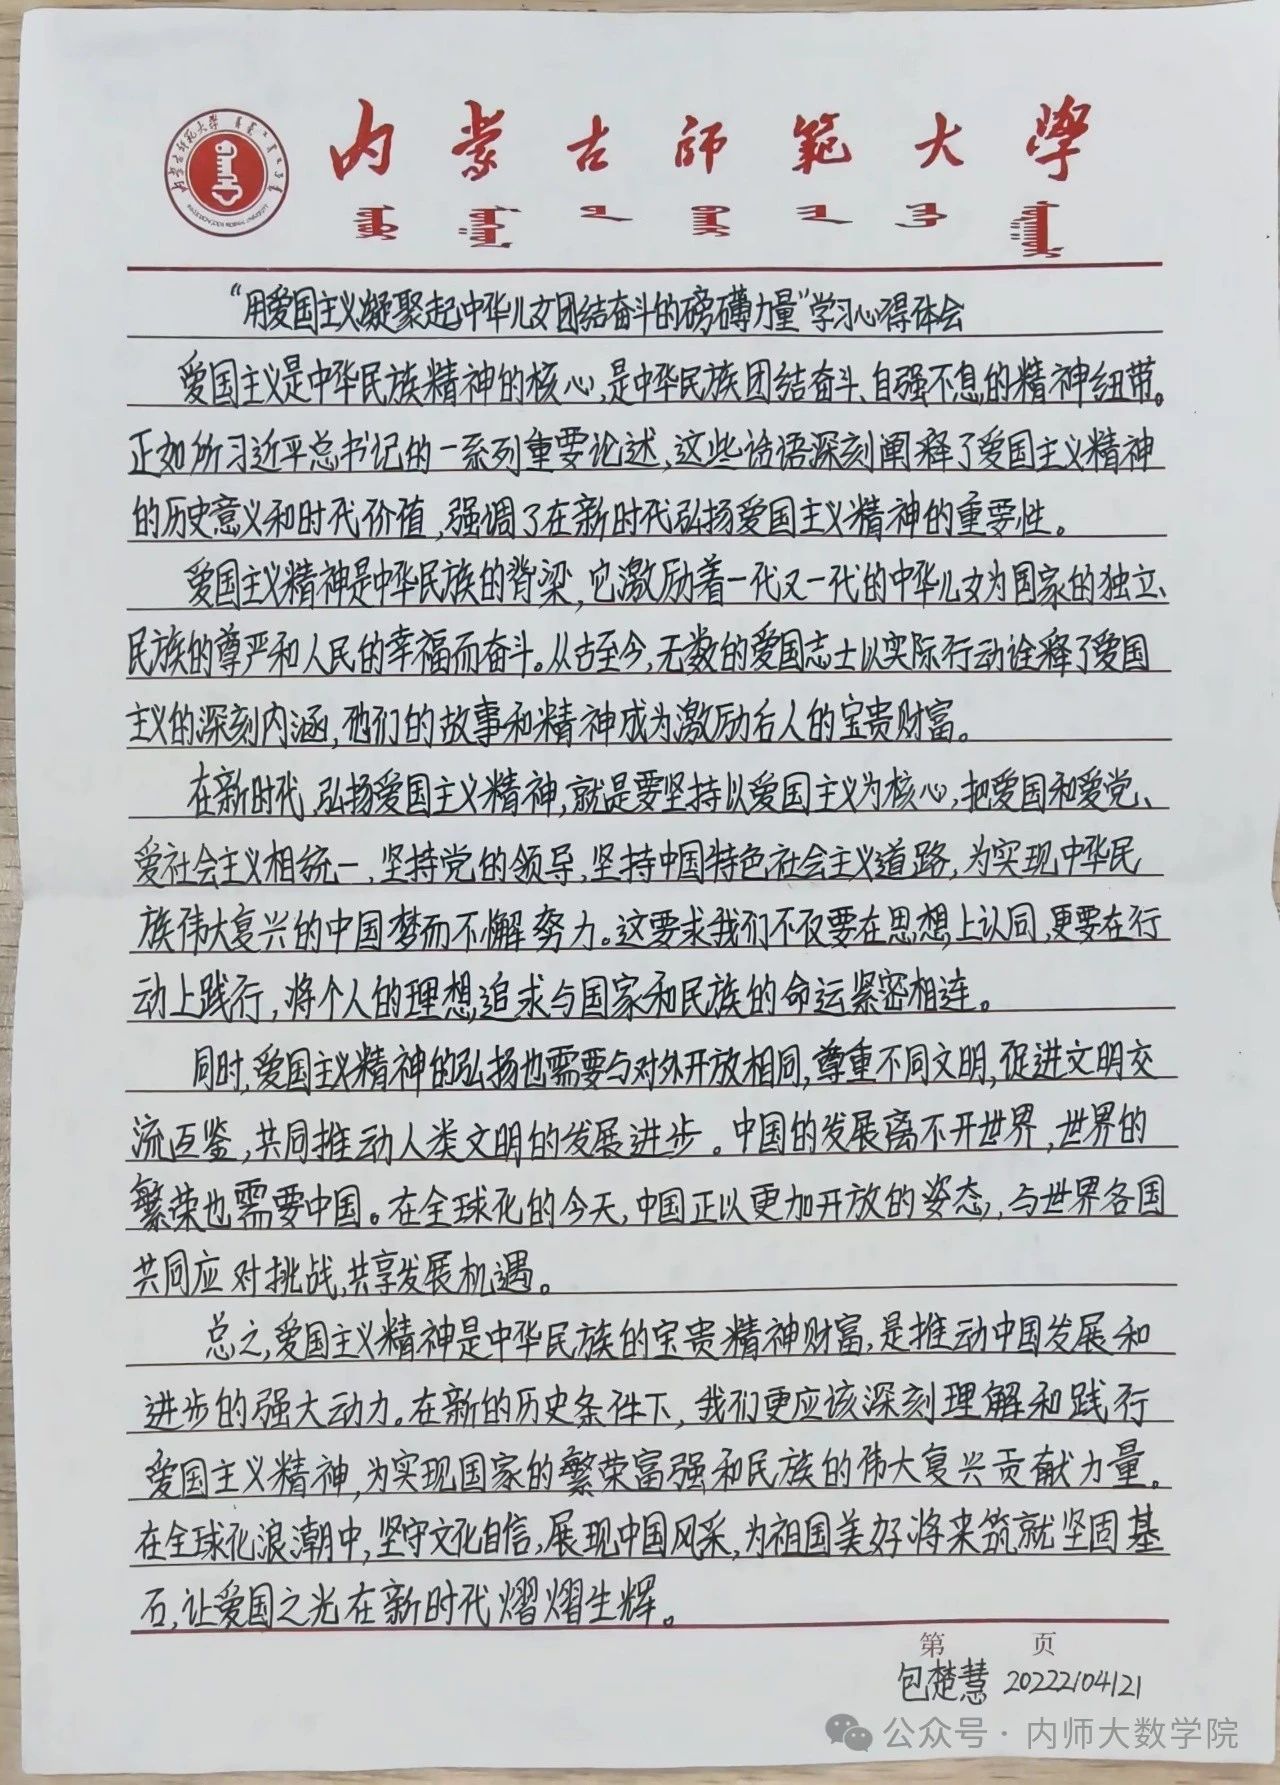 内蒙古师范大学
“用爱国主义凝聚起中华儿女团结奋斗的磅礴力量”学习心得体会
爱国主义是中华民族精神的核心,是中华民族团结奋斗、自强不息的精神纽带。
正如所习近平总书记的一系列重要论述,这些话语深刻阐释了爱国主义精神
的历史意义和时代价值,强调了在新时代弘扬爱国主义精神的重要性。
爱国主义精神是中华民族的脊梁,它激励着一代又一代的中华儿女为国家的独立、
民族的尊严和人民的幸福而奋斗。从古至今,无数的爱国志士以实际行动诠释了爱国
主义的深刻内涵,他们的故事和精神成为激励后人的宝贵财富。
在新时代,弘扬爱国主义精神,就是要坚持以爱国主义为核心,把爱国和爱党、
爱社会主义相统一,坚持党的领导,坚持中国特色社会主义道路,为实现中华民
族伟大复兴的中国梦而不懈努力。这要求我们不仅要在思想上认同,更要在行
动上践行,将个人的理想追求与国家和民族的命运紧密相连。
同时,爱国主义精神的弘扬也需要与对外开放相同,尊重不同文明,促进文明交
流互鉴,共同推动人类文明的发展进步。中国的发展离不开世界,世界的
繁荣也需要中国。在全球化的今天,中国正以更加开放的姿态,与世界各国
共同应对挑战,共享发展机遇。
总之,爱国主义精神是中华民族的宝贵精神财富,是推动中国发展和
进步的强大动力。在新的历史条件下,我们更应该深刻理解和践行
爱国主义精神,为实现国家的繁荣富强和民族的伟大复兴贡献力量。
在全球化浪潮中,坚守文化自信,展现中国风采,为祖国美好将来筑就坚固基
石,让爱国之光在新时代熠熠生辉。
第 页
包楚慧 20222104121
公众号·内师大数学院